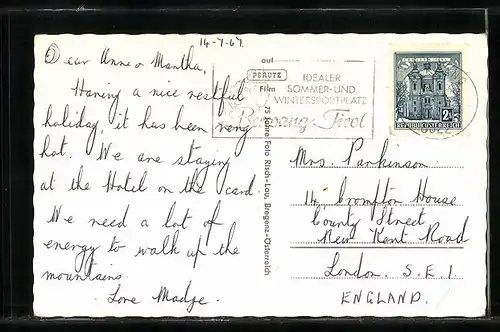 14-7-67.
Dear Anne & Martha,
Having a nice restful
holiday, it has been very
hot. We are staying
at the Hotel on the card.
We need a lot of
energy to walk up the
mountains.
Love Madge.
auf
PERUTZ
Film
IDEALER
SOMMER- UND
WINTERSPORTPLATZ
Tirol
REPUBLIK ÖSTERREICH
75 Jahre Foto Risch-Lau, Bregenz-Österreich
Mrs. Parkinson.
14, Crompton House
County Street,
New Kent Road
London. S.E.1.
ENGLAND.